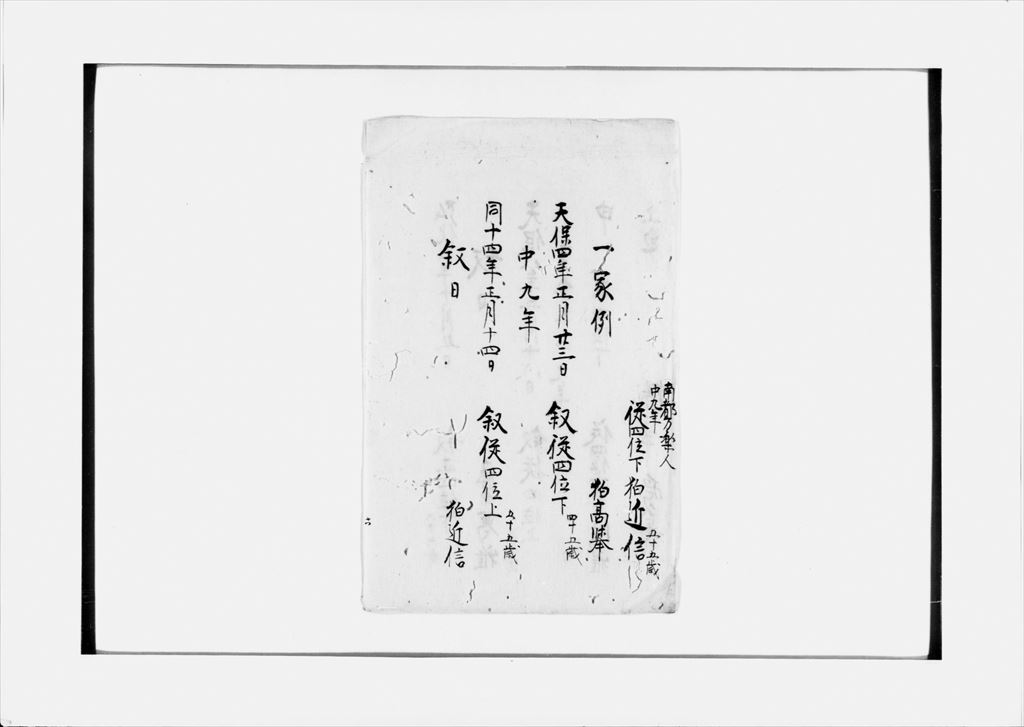 南都方楽人
中九年
從四位下 狛近信 五十五歳
一家例 狛高擧
天保四年正月廿三日 叙從四位下 四十五歳
中九年
同十四年正月十四日 叙從四位上 五十五歳
叙日 狛近信